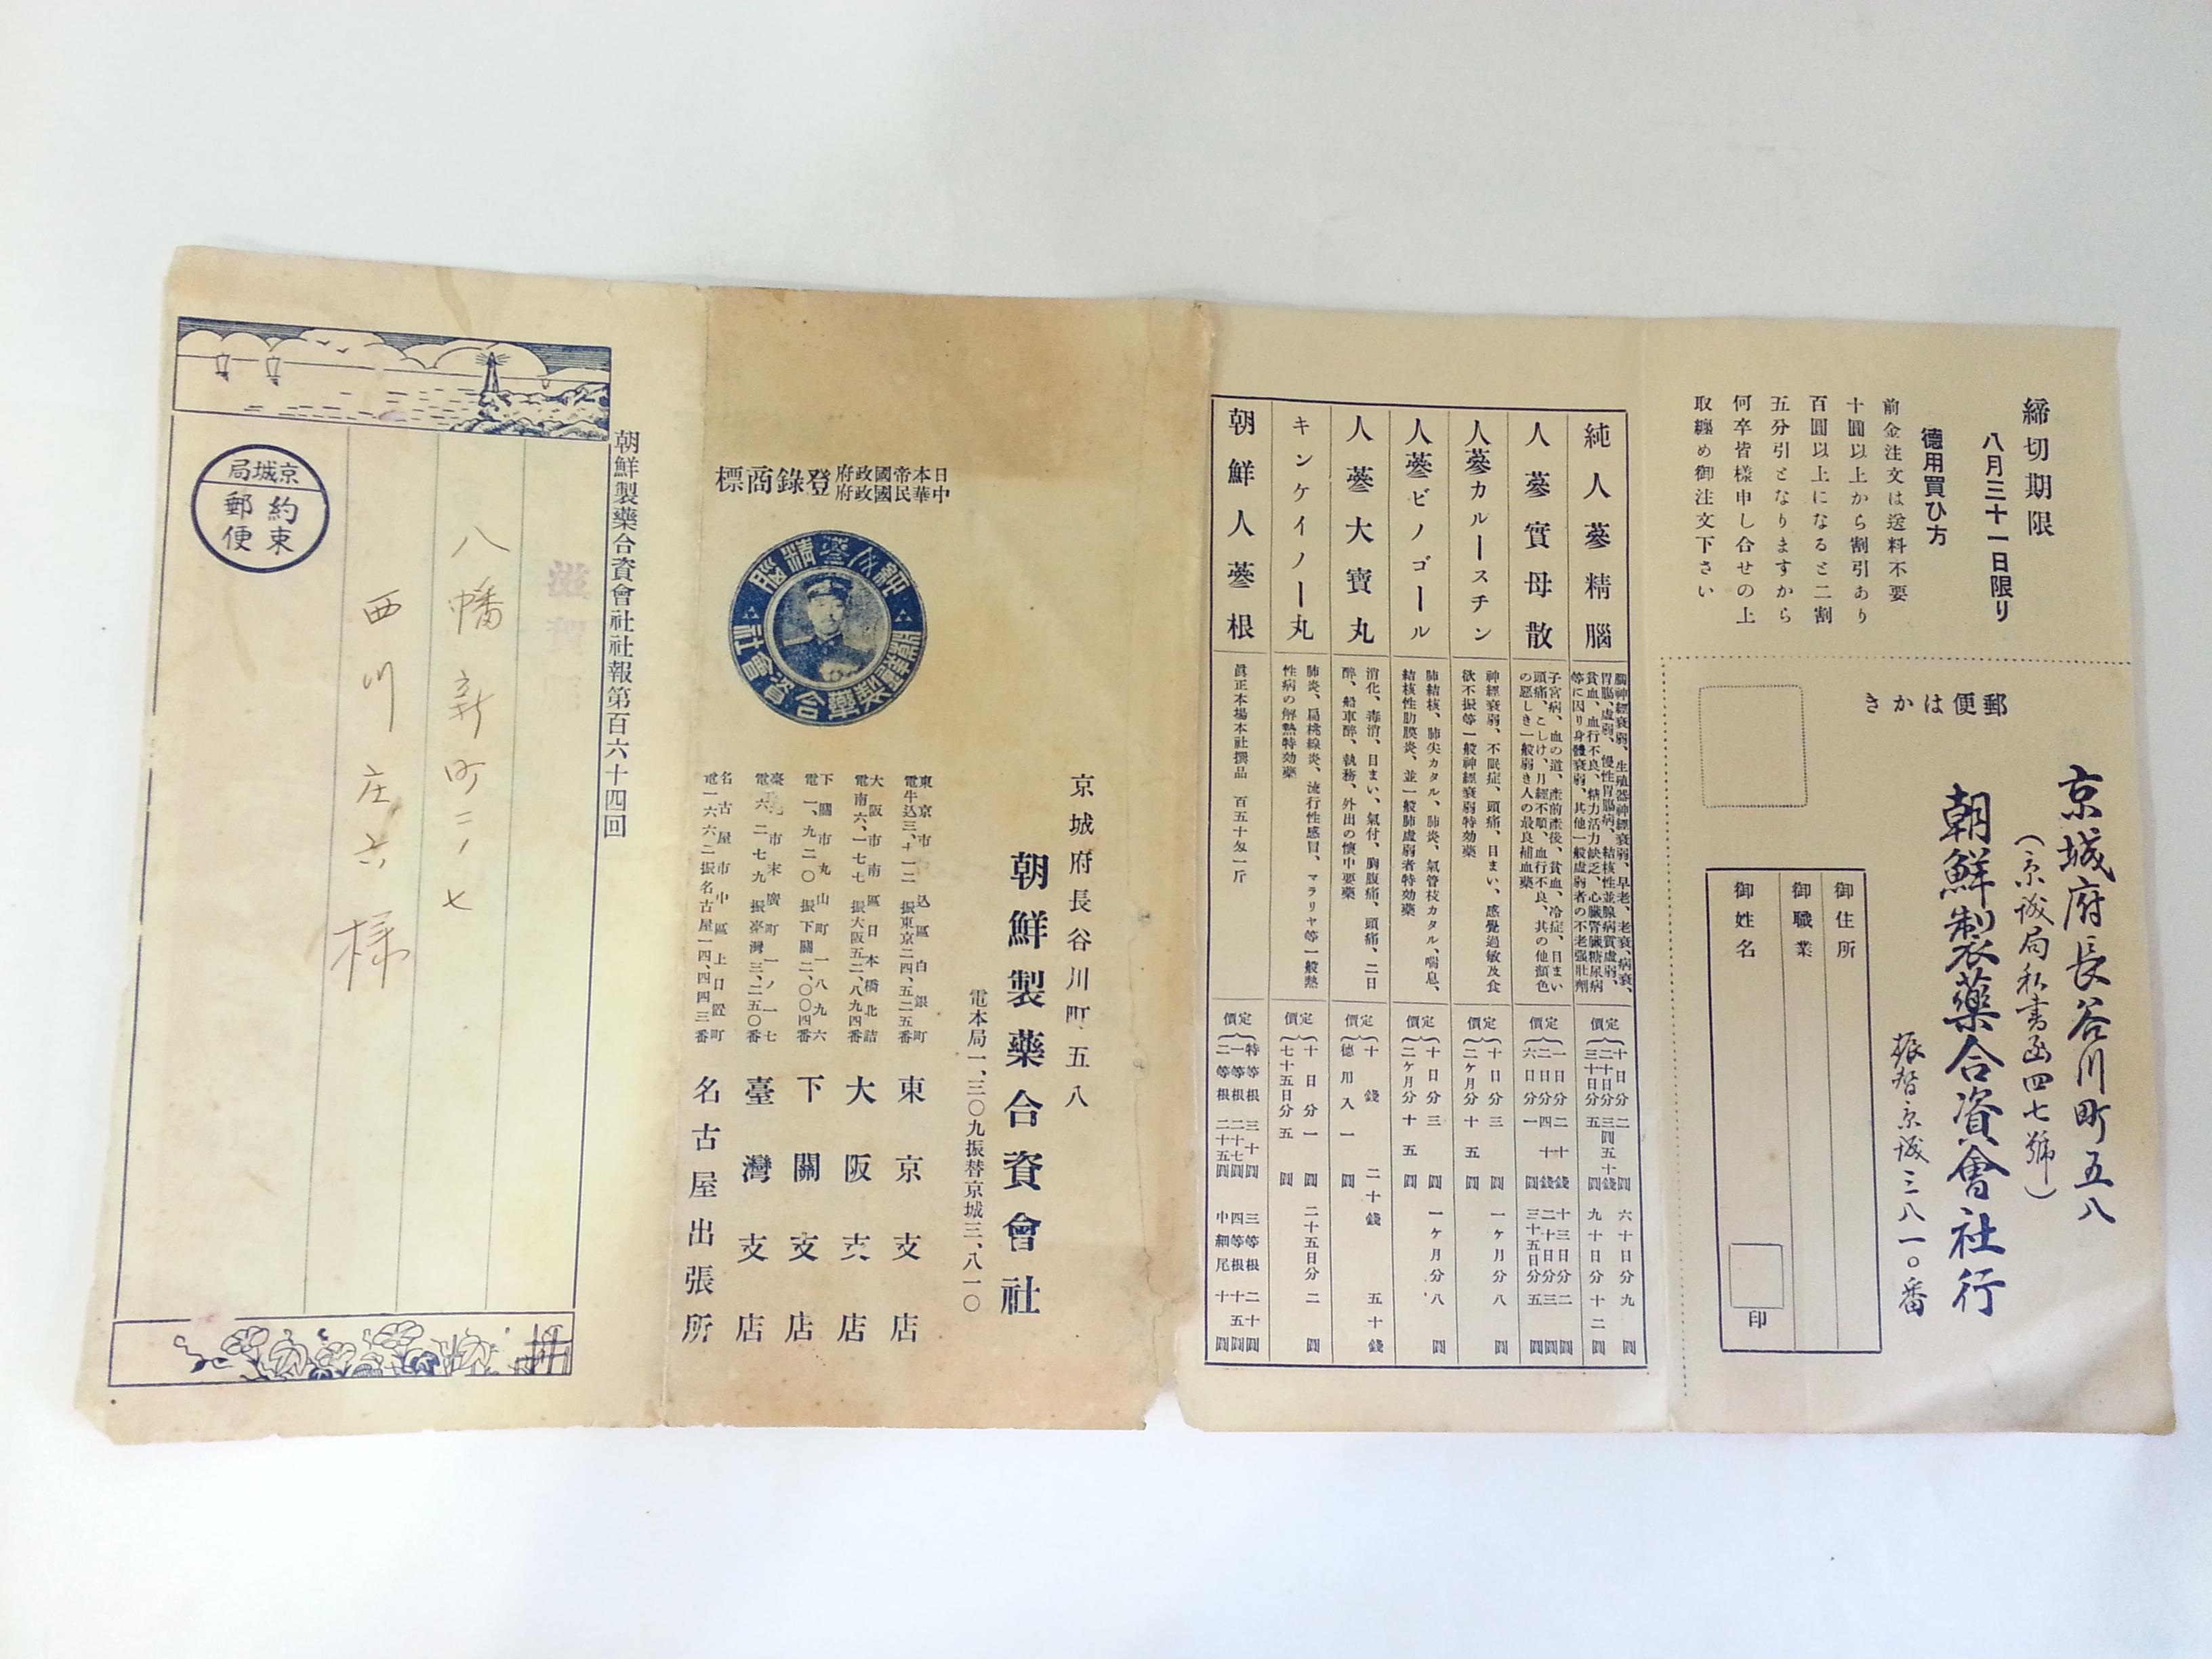 締切期限
八月三十一日限り
徳用買ひ方
前金注文は送料不要
十圓以上から割引あり
百圓以上になると二割
五分引となりますから
何卒皆様申し合せの上
取纏め御注文下さい
郵便はかき
京城府長谷川町五八
(京城局私書函四七號)
朝鮮製藥合資會社行
振替京城三八一〇番
御住所
御職業
御姓名
印
純人蔘精腦
腦神經衰弱、生殖器神經衰弱、早老、老衰、病衰、
胃腸、虛弱、慢性胃腸病、結核性並腺病質虛弱、
貧血、血行不良、精力活力缺乏、心臟腎臟糖尿病
等に因り身體衰弱、其他一般虛弱者の不老强壯劑
定價
十日分 二圓
二十日分 三圓五十錢
三十日分 五圓
六十日分 九圓
九十日分 十二圓
人蔘實母散
子宮病、血の道、產前產後、貧血、冷症、目まい
頭痛、こしけ、月經不順、血行不良、其の他顏色
の惡しき一般弱き人の最良補血藥
定價
一日分 二十錢
二日分 四十錢
六日分 一圓
十三日分 二圓
二十日分 三圓
三十五日分 五圓
人蔘カルースチン
神經衰弱、不眠症、頭痛、目まい、感覺過敏及食
欲不振等一般神經衰弱特効藥
定價
十日分 三圓
二ヶ月分 十五圓
一ヶ月分 八圓
人蔘ビノゴール
肺結核、肺尖カタル、肺炎、氣管枝カタル、喘息、
結核性肋膜炎、並一般肺虛弱者特効藥
定價
十日分 三圓
二ヶ月分 十五圓
一ヶ月分 八圓
人蔘大寶丸
消化、毒消、目まい、氣付、胸腹痛、頭痛、二日
醉、船車醉、執務、外出の懷中要藥
定價
十錢 二十錢 五十錢
徳用入 一圓
キンケイノー丸
肺炎、扁桃線炎、流行性感冒、マラリヤ等一般熱
性病の解熱特効藥
定價
十日分 一圓
七十五日分 五圓
二十五日分 二圓
朝鮮人蔘根
眞正本場本社撰品 百五十匁一斤
定價
特等根 三十圓
一等根 二十七圓
二等根 二十五圓
三等根 二十圓
四等根 十五圓
中細尾 十圓
日本帝國政府
中華民國政府
登錄商標
純人蔘精腦
朝鮮製藥合資會社
京城府長谷川町五八
朝鮮製藥合資會社
電本局一、三〇九振替京城三、八一〇
東京市 込區白銀町
電牛込三、十一二 振東京二四、五二五番
東京支店
大阪市南區日本橋北詰
電南六、一七七 振大阪五二、八九四番
大阪支店
下關市丸山町一八九六
電一、九二〇 振下關二、〇〇四番
下關支店
市末廣町一ノ一七
電六二七九 振臺灣三、二五〇番
臺灣支店
名古屋市中區上日置町
電一六六二振名古屋一四、四四三番
名古屋出張所
朝鮮製藥合資會社社報第百六十四回
滋賀
京城局
約束
郵便
八幡新町二ノ七
西川庄六様